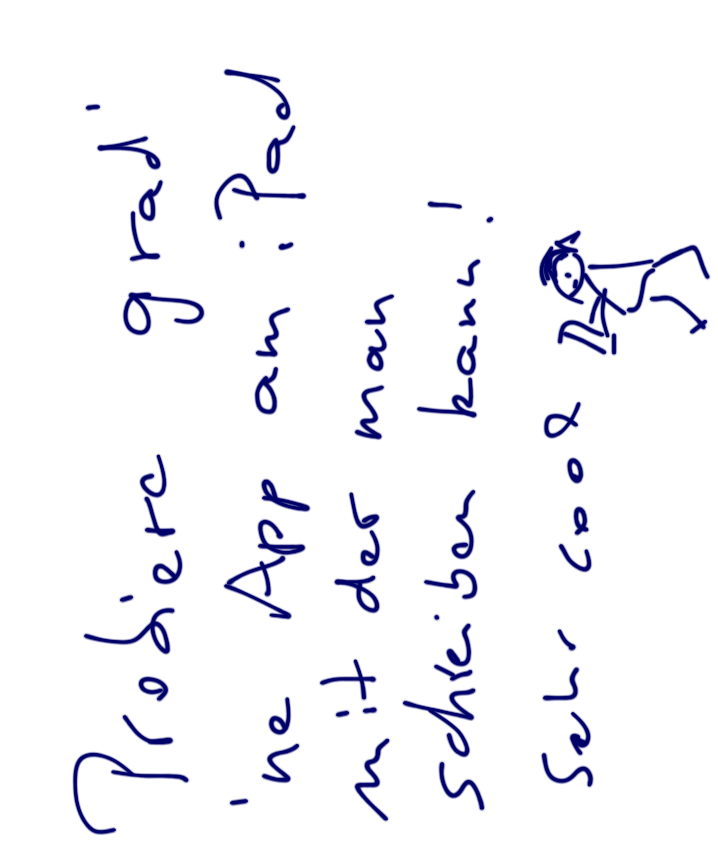 Probiere grad'
'ne App am iPad
mit der man
schreiben kann!
Sehr cool